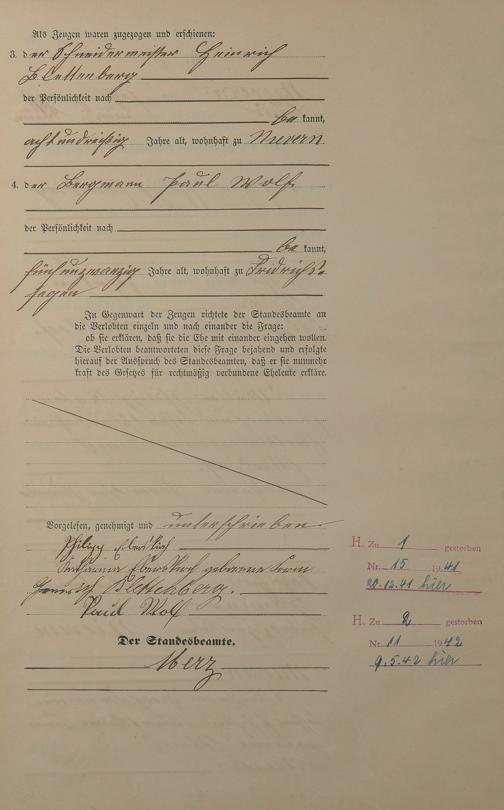 Als Zeugen waren zugezogen und erschienen:
3. der Schneidermeister Heinrich
Klettenberg
der Persönlichkeit nach
be kannt,
achtunddreißig Jahre alt, wohnhaft zu Nievern
4. der Bergmann Paul Wolf
der Persönlichkeit nach
be kannt,
fünfundzwanzig Jahre alt, wohnhaft zu Fridrichs-
segen
In Gegenwart der Zeugen richtete der Standesbeamte an
die Verlobten einzeln und nach einander die Frage:
ob sie erklären, daß sie die Ehe mit einander eingehen wollen.
Die Verlobten beantworteten diese Frage bejahend und erfolgte
hierauf der Ausspruch des Standesbeamten, daß er sie nunmehr
kraft des Gesetzes für rechtmäßig verbundene Eheleute erkläre.
Vorgelesen, genehmigt und unterschrieben
Philipp
Katharina geborene
Heinrich Klettenberg.
Paul Wolf
Der Standesbeamte.
Merz
H. Zu 1 gestorben
Nr. 15 1941
20.12.41 hier
H. Zu 2 gestorben
Nr. 11 1942
9.5.42 hier